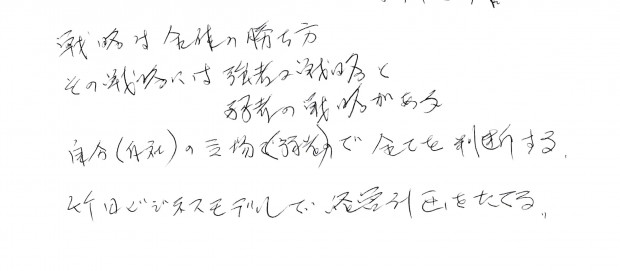 戦略は全体の勝ち方
その戦略には強者の戦略と
弱者の戦略がある
自分(会社)の立場(弱者)で全てを判断する.
ビジネスモデルで経営計画をたてる。